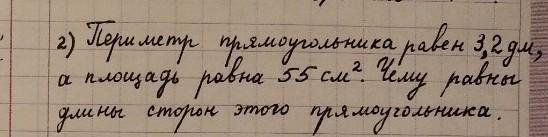 2) Периметр прямоугольника равен 3,2 дм,
а площадь равна 55 см². Чему равны
длины сторон этого прямоугольника.